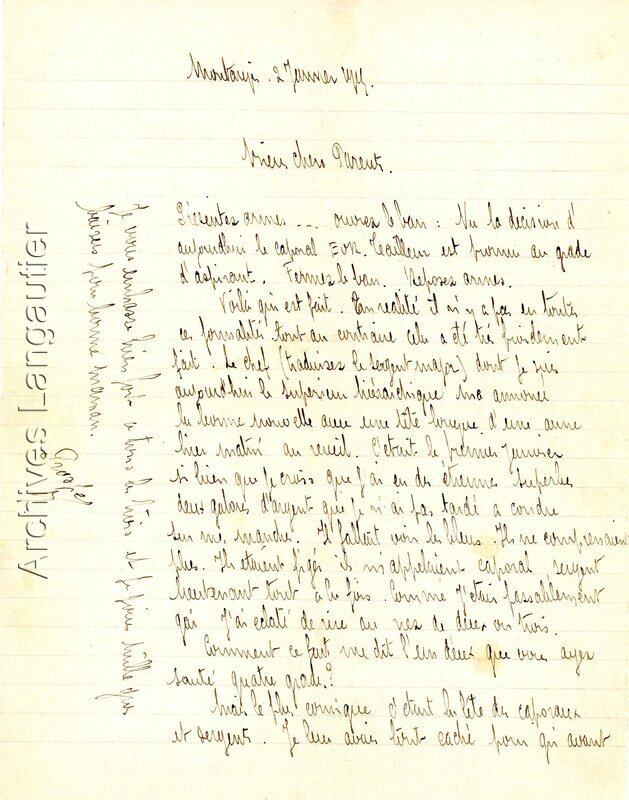 Montargis. 2 Janvier 1915.
Biens chers Parents.
Présentes armes ... ouvrez le ban : Vu la décision d'
aujourdhui le caporal EOR. Tailleur est promu au grade
d'aspirant. Fermez le ban. Reposez armes.
Voilà qui est fait. En realité il n'y a pas eu toutes
ces formalités tout au contraire cela a été très froidement
fait. Le chef (traduisez le sergent major) dont je suis
aujourdhui le superieur hiérarchique m'a annoncé
la bonne nouvelle avec une tête longue d'une aune
hier matin au reveil. C'etait le premier Janvier
si bien que je crois que j'ai eu des étrennes superbes
deux galons d'argent que je n'ai pas tardé a coudre
sur mes manches. Il fallait voir les bleus. Ils ne comprenaient
plus. Ils etaient figés ils m'appelaient caporal sergent
lieutenant tout a la fois. Comme j'etais passablement
gai j'ai eclaté de rire au nez de deux ou trois.
Comment ce fait me dit l'un deux que vous ayez
sauté quatre grades?
Mais le plus comique c'etait la tête des caporaux
et sergents. Je leur avais tout caché pour qu'avant
Je vous embrasse bien fort a tous les trois et je joins mille gros
baisers pour bonne maman.
Archives Langautier